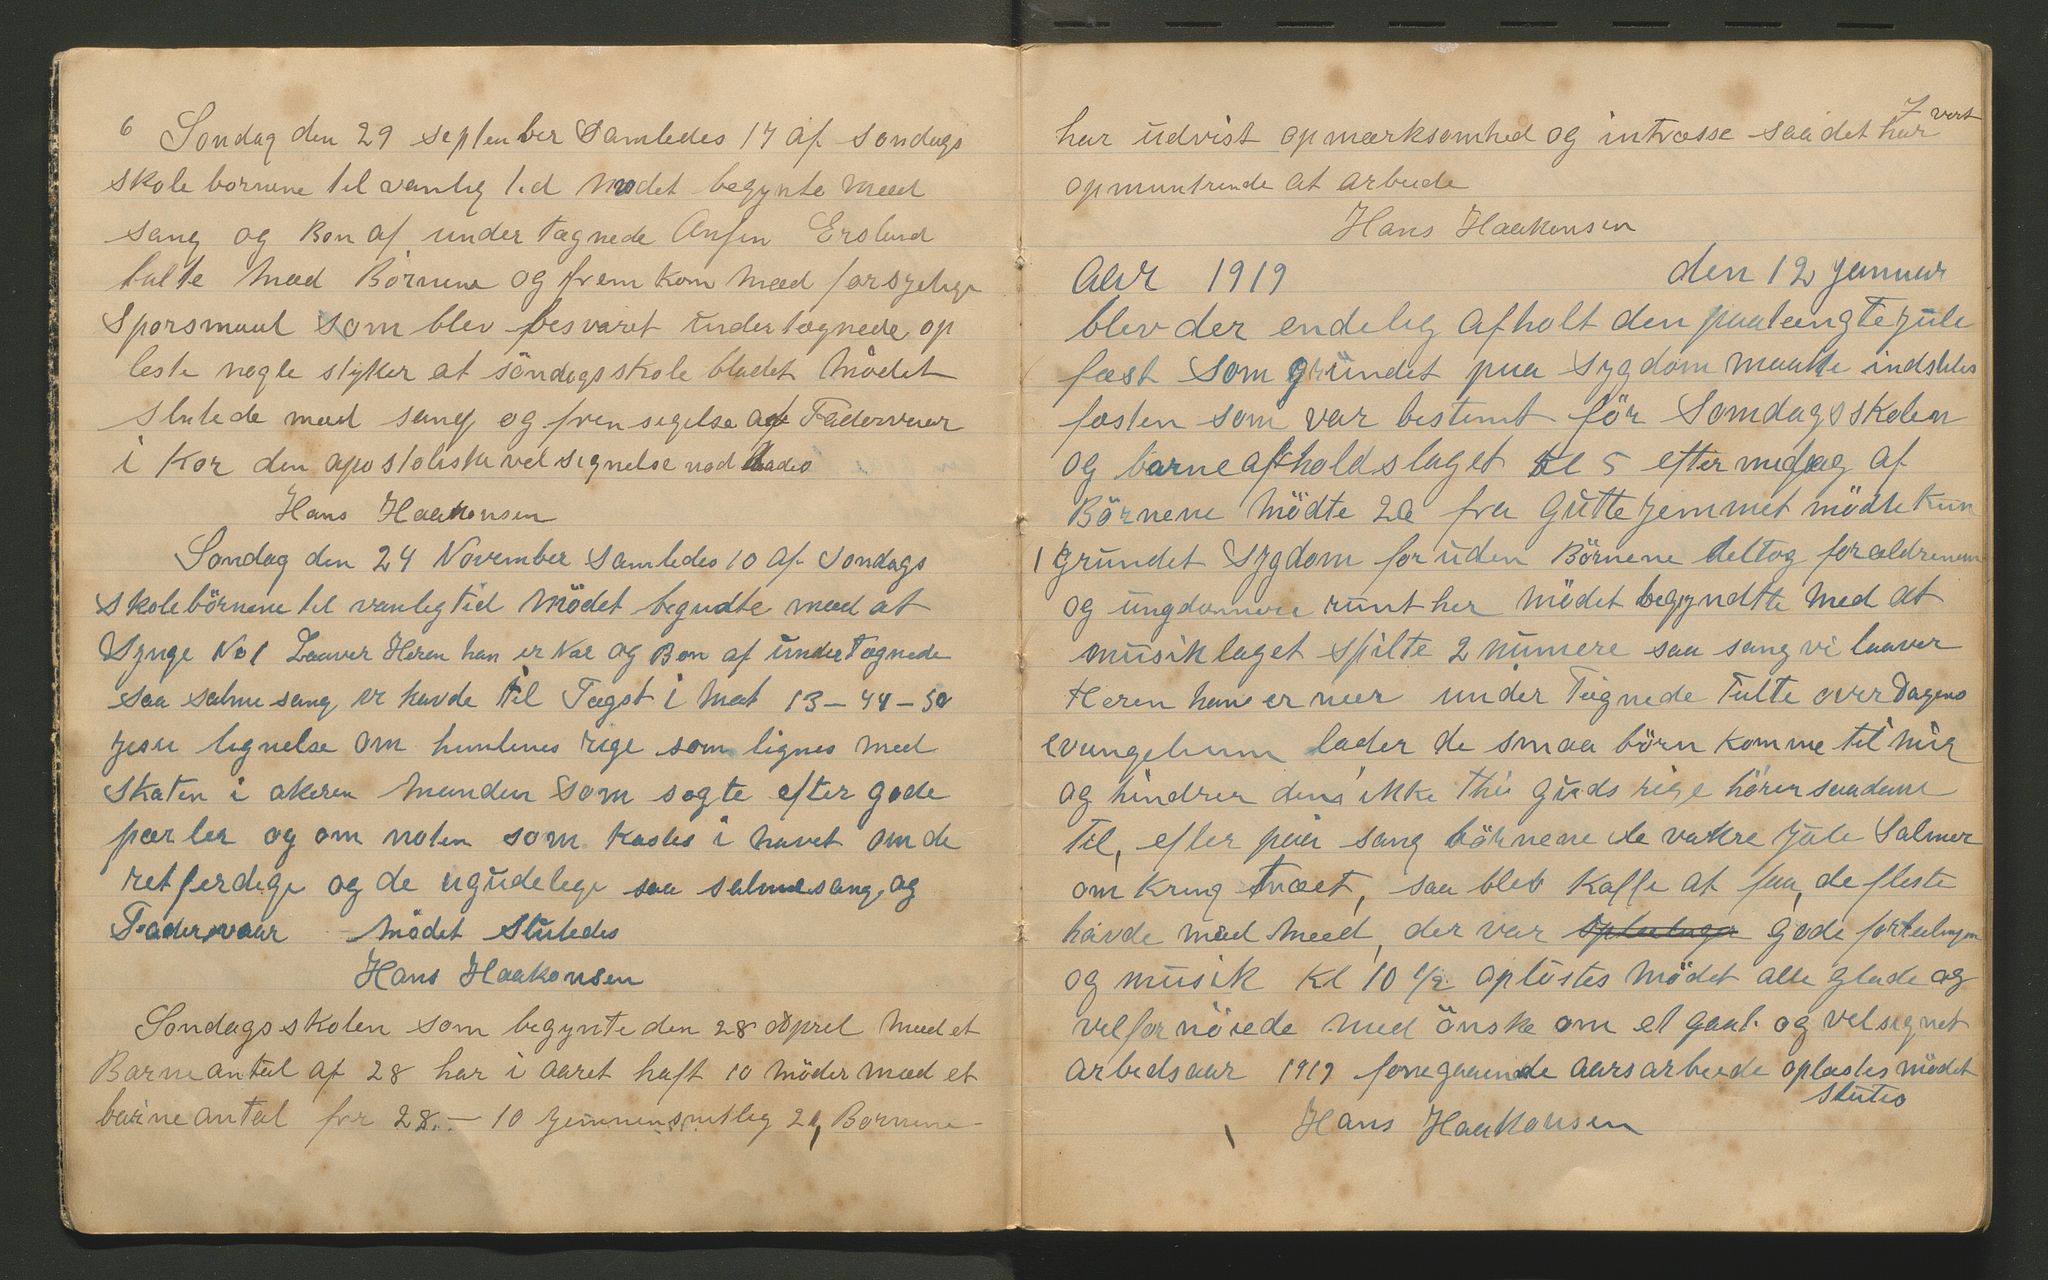 6 Søndag den 29 september Samledes 17 af søndags
skole børnene til vanlig tid Mødet begynte mæd
sang og Bøn af undertægnede Anfin Ersland
talte mæd Børnene og fremkom mæd forsjelige
Spørsmaal som blev besvaret undertægnede op
leste nogle styker at søndagsskole bladet Mødet
slutede mæd sang og fremsigelse af Fadervaar
i Kor den apostoliske velsignelse
Hans Haakonsen
Søndag den 24 November Samledes 10 af søndags
skolebörnene til vanlig tid Mödet begudte mæd at
Synge No 1 Laaver Heren han er Nær og Bøn af undertægnede
saa salme sang vi havde til Tægst i Mat 13 – 44 – 50
Jesu lignelse om himlenes rige som lignes med
skaten i akeren Manden som søgte efter gode
pærler og om noten som kastes i havet om de
retferdige og de ugudelige saa salmesang og
Fadervaar Mödet Slutedes
Hans Haakonsen
Søndagsskolen som begynte den 28 April Mæd et
Barneantal af 28 har i aaret haft 10 möder mæd et
barneantal fra 28 – 10 Børnene
7
har udvist opmærksomhed og intræsse saa det har vert
opmuntrende at arbeide
Hans Haakonsen
Aar 1919 den 12 Januar
blev der endelig afholt den paatængte jule
fæst som grundet paa Sygdom maatte indstiles
fæsten som var bestemt för Søndagsskolen
og barneafholdslaget kl 5 eftermidag af
Börnene Mödte 20 fra Guttejemmet mödte kun
1 grundet Sygdom foruden Börnene deltog forældrenene
og ungdommen runt her Mödet begyndtte Med at
musiklaget spilte 2 numere saa sang vi laaver
Heren han er nær undertegnede Talte over Dagens
evangelium lader de smaa börn komme til mig
og hindrer dem ikke thi Guds rige hörer saadane
til, efter paa sang börnene de vakre jule Salmer
omkring træet, saa blev Kaffe at faa, de fleste
havde mad Med, der var gode fortelinger
og musik Kl 10 1/2 oplöstes Mödet alle glade og
velfornöiede med önske om et gaat og velsignet
arbedsaar 1919 foregaaende aarsarbeide oplæstes mödet
slutes
Hans Haakonsen